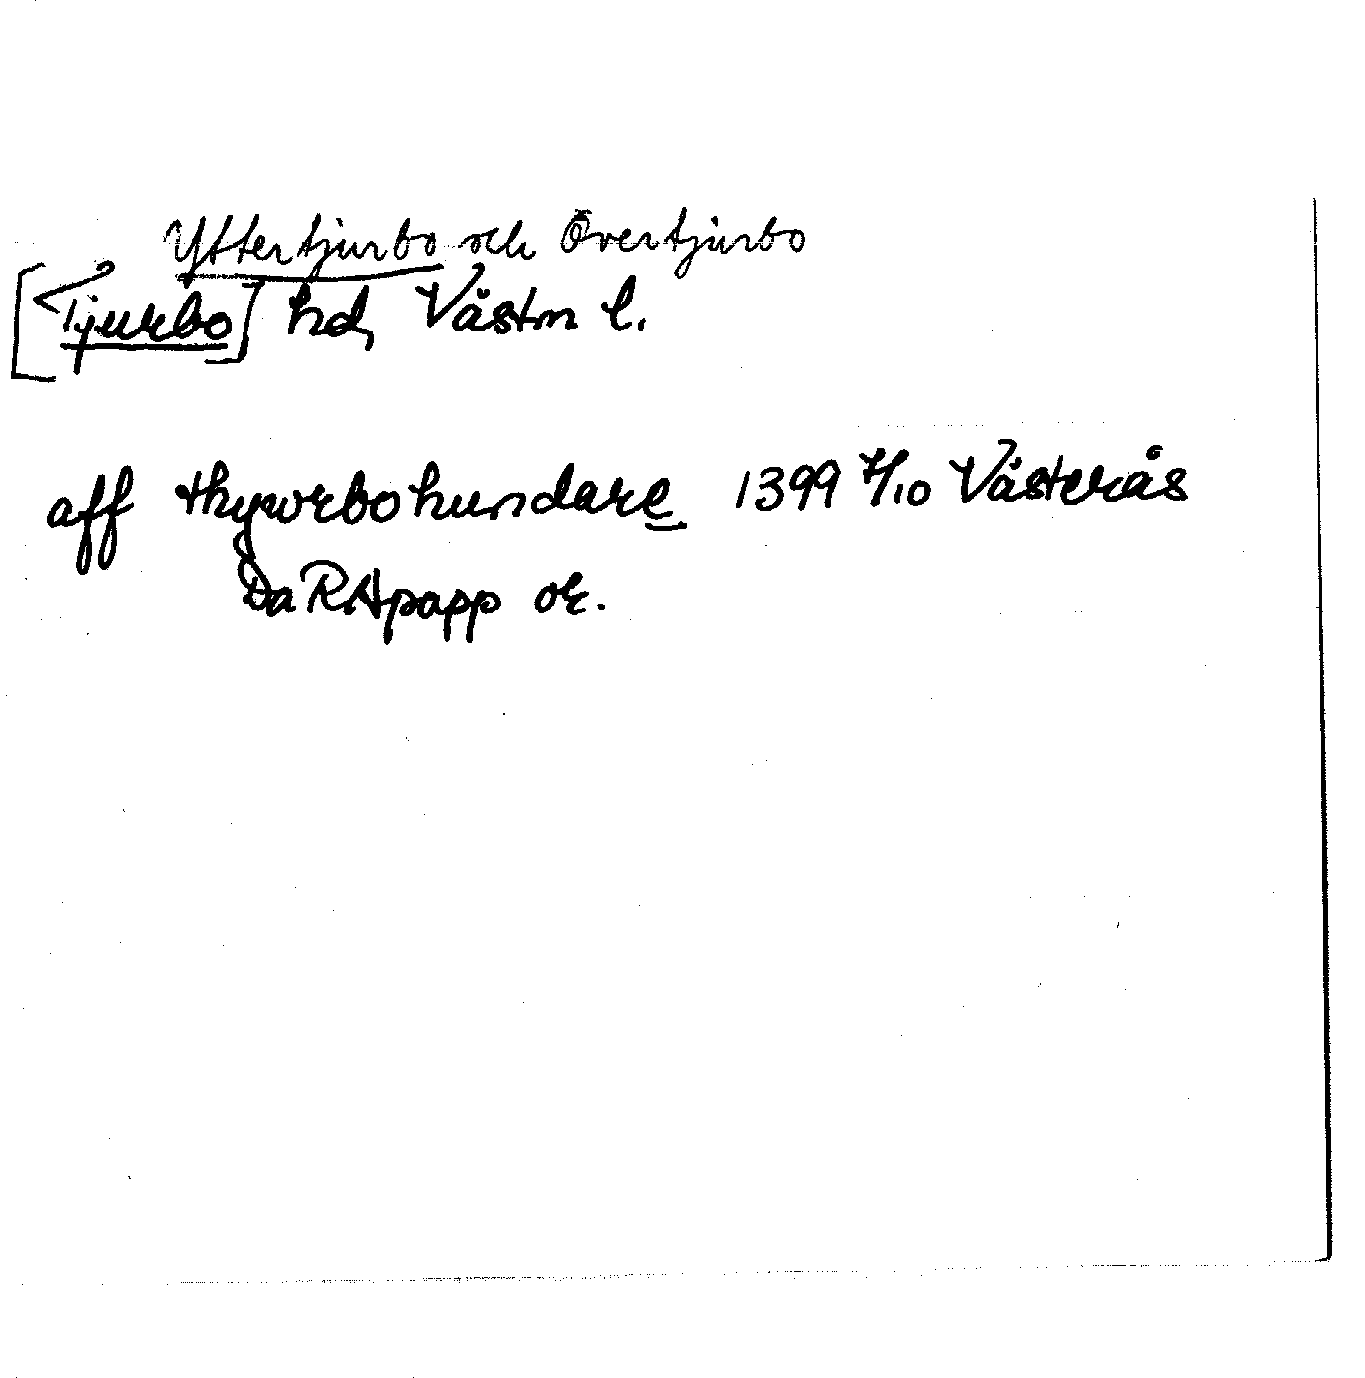 Yttertjurbo och Övertjurbo
[Tjurbo] hd, Västm l.
aff thywrbohundare 1399 7/10 Västerås
Da RApapp or.